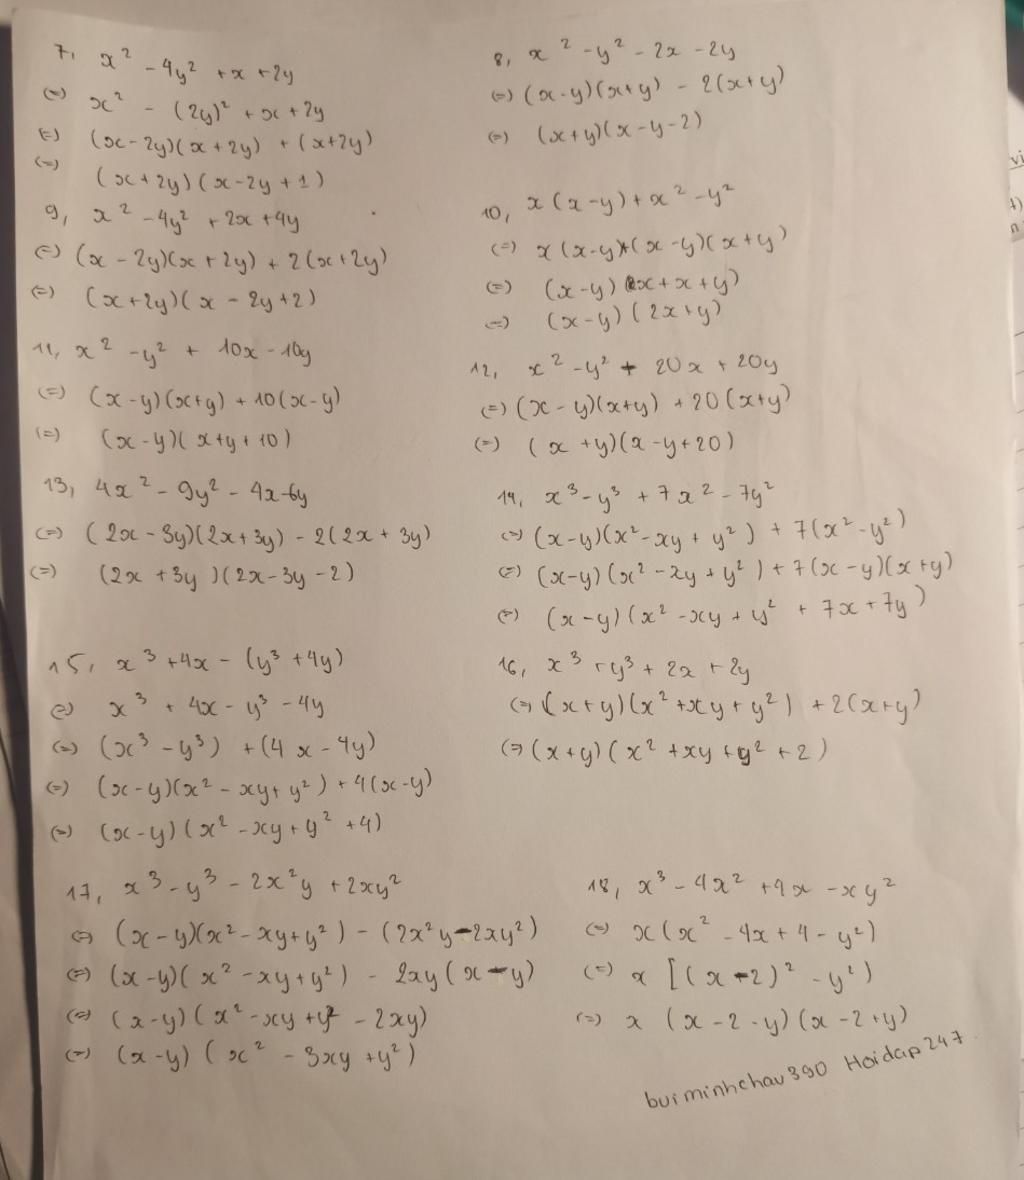 7, x² - 4y² + x + 2y
(=) x² - (2y)² + x + 2y
(=) (x - 2y)(x + 2y) + (x + 2y)
(=) (x + 2y)(x - 2y + 1)
8, x² - y² - 2x - 2y
(=) (x - y)(x + y) - 2(x + y)
(=) (x + y)(x - y - 2)
9, x² - 4y² + 2x + 4y
(=) (x - 2y)(x + 2y) + 2(x + 2y)
(=) (x + 2y)(x - 2y + 2)
10, x(x - y) + x² - y²
(=) x(x - y) + (x - y)(x + y)
(=) (x - y)(x + x + y)
(=) (x - y)(2x + y)
11, x² - y² + 10x - 10y
(=) (x - y)(x + y) + 10(x - y)
(=) (x - y)(x + y + 10)
12, x² - y² + 20x + 20y
(=) (x - y)(x + y) + 20(x + y)
(=) (x + y)(x - y + 20)
13, 4x² - 9y² - 4x - 6y
(=) (2x - 3y)(2x + 3y) - 2(2x + 3y)
(=) (2x + 3y)(2x - 3y - 2)
14, x³ - y³ + 7x² - 7y²
(=) (x - y)(x² - xy + y²) + 7(x² - y²)
(=) (x - y)(x² - xy + y²) + 7(x - y)(x + y)
(=) (x - y)(x² - xy + y² + 7x + 7y)
15, x³ + 4x - (y³ + 4y)
(=) x³ + 4x - y³ - 4y
(=) (x³ - y³) + (4x - 4y)
(=) (x - y)(x² - xy + y²) + 4(x - y)
(=) (x - y)(x² - xy + y² + 4)
16, x³ + y³ + 2x + 2y
(=) (x + y)(x² + xy + y²) + 2(x + y)
(=) (x + y)(x² + xy + y² + 2)
17, x³ - y³ - 2x²y + 2xy²
(=) (x - y)(x² - xy + y²) - (2x²y - 2xy²)
(=) (x - y)(x² - xy + y²) - 2xy(x - y)
(=) (x - y)(x² - xy + y² - 2xy)
(=) (x - y)(x² - 3xy + y²)
18, x³ - 4x² + 4x - xy²
(=) x(x² - 4x + 4 - y²)
(=) x[(x - 2)² - y²)
(=) x(x - 2 - y)(x - 2 + y)
buiminhchau390 Hoidap247